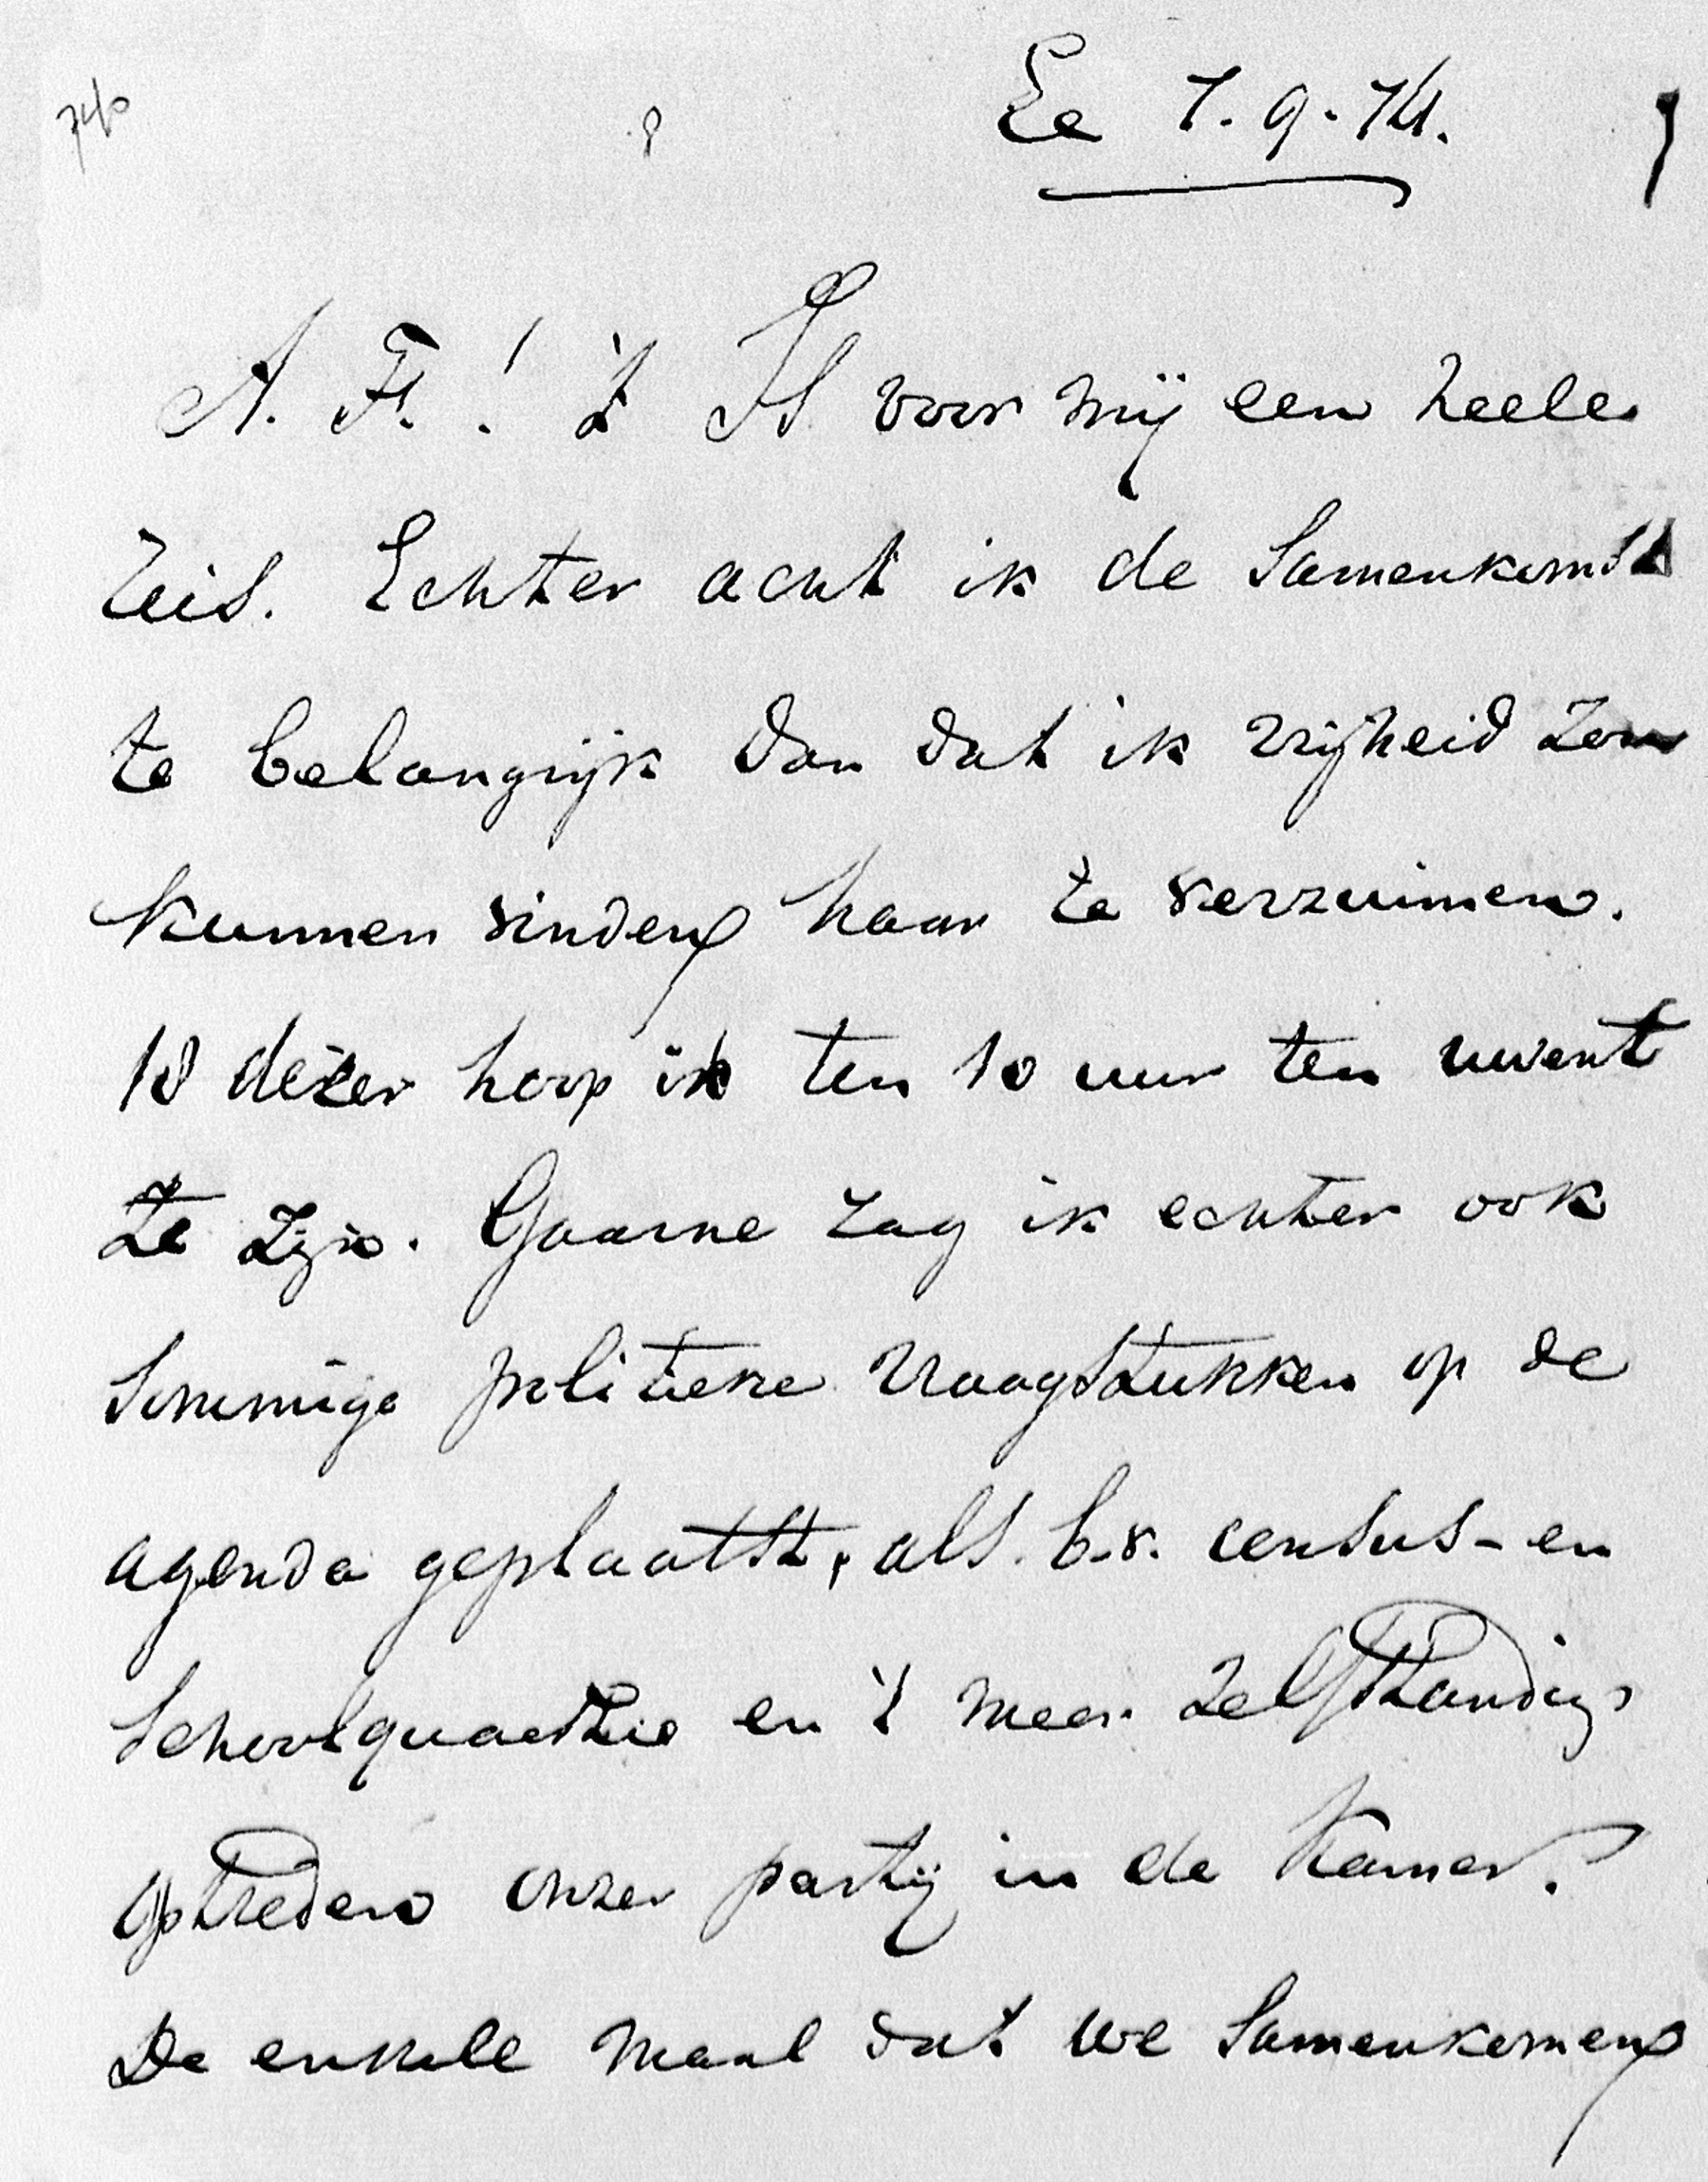 740
Ee 7.9.74.
A. F.! 't Is voor mij een heele
reis. Echter acht ik de samenkomst
te belangrijk dan dat ik vrijheid zou
kunnen vinden haar te verzuimen.
18 dezer hoop ik ten 10 uur ten uwent
te zijn. Gaarne zag ik echter ook
sommige politieke vraagstukken op de
agenda geplaatst, als b.v. census- en
schoolquaestie en 't meer zelfstandig
optreden onzer partij in de Kamer.
De enkele maal dat we samenkomen